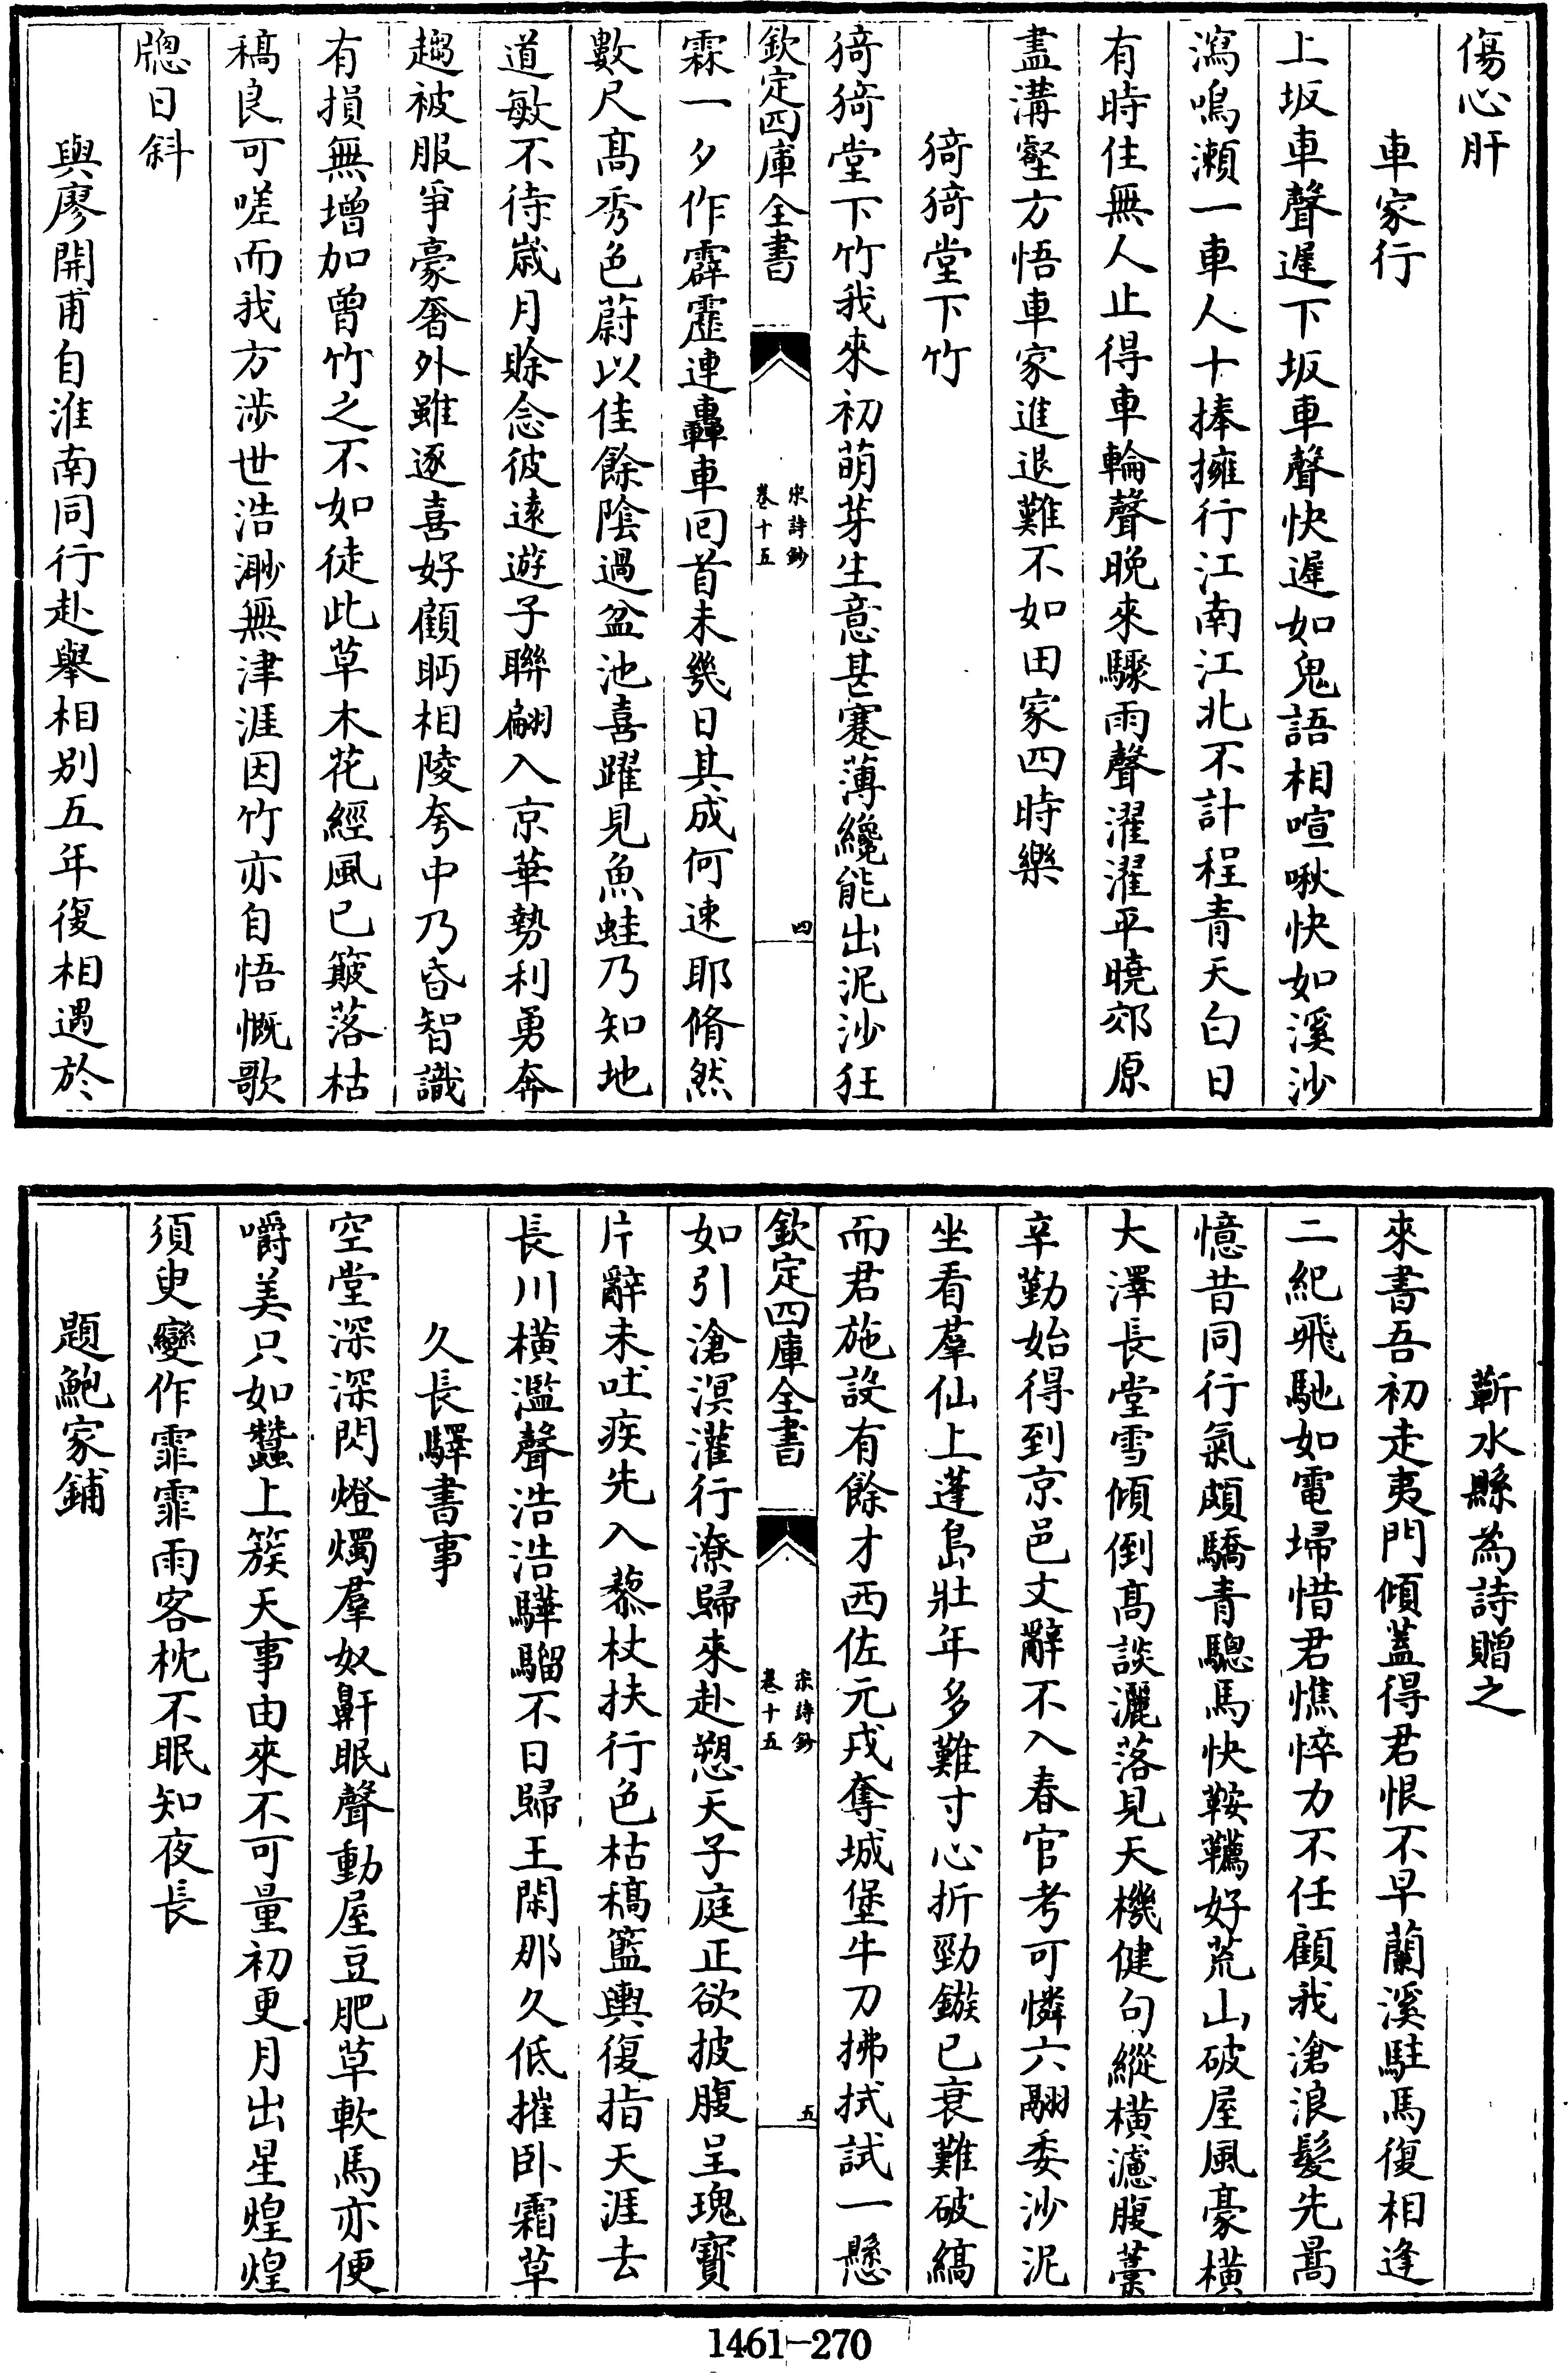 傷心肝
車家行
上坂車聲遲下坂車聲快遲如鬼語相喧啾快如溪沙
瀉鳴瀨一車人十捧擁行江南江北不計程青天白日
有時住無人止得車輪聲晚來驟雨聲濯濯平曉郊原
盡溝壑方悟車家進退難不如田家四時樂
猗猗堂下竹
猗猗堂下竹我來初萌芽生意甚蹇薄纔能出泥沙狂
欽定四庫全書
宋詩鈔
卷十五
四
霖一夕作霹靂連轟車回首未幾日其成何速耶脩然
數尺髙秀色蔚以佳餘陰過盆池喜躍見魚蛙乃知地
道敏不待歳月賒念彼逺遊子聯翩入京華勢利勇奔
趨被服爭豪奢外雖逐喜好顧眄相陵夸中乃昏智識
有損無増加曽竹之不如徒此草木花經風已簸落枯
稿良可嗟而我方渉世浩渺無津涯因竹亦自悟慨歌
牎日斜
與廖開甫自淮南同行赴舉相别五年復相遇於
蘄水縣為詩贈之
來書吾初走夷門傾蓋得君恨不早蘭溪駐馬復相逢
二紀飛馳如電埽惜君憔悴力不任顧我滄浪髮先暠
憶昔同行氣頗驕青驄馬快鞍韉好荒山破屋風豪横
大澤長堂雪傾倒髙談灑落見天機健句縱横濾腹藁
辛勤始得到京邑文辭不入春官考可憐六翮委沙泥
坐看羣仙上蓬島壯年多難寸心折勁鏃已衰難破縞
而君施設有餘才西佐元戎奪城堡牛刀拂拭試一懸
欽定四庫全書
宋詩鈔
卷十五
五
如引滄溟灌行潦歸來赴愬天子庭正欲披腹呈瑰寳
片辭未吐疾先入藜杖扶行色枯稿籃輿復指天涯去
長川横濫聲浩浩驊騮不日歸王閑那久低摧卧霜草
久長驛書事
空堂深深閃燈燭羣奴鼾眠聲動屋豆肥草軟馬亦便
嚼美只如蠶上簇天事由來不可量初更月出星煌煌
須臾變作霏霏雨客枕不眠知夜長
題鮑家鋪
1461-270